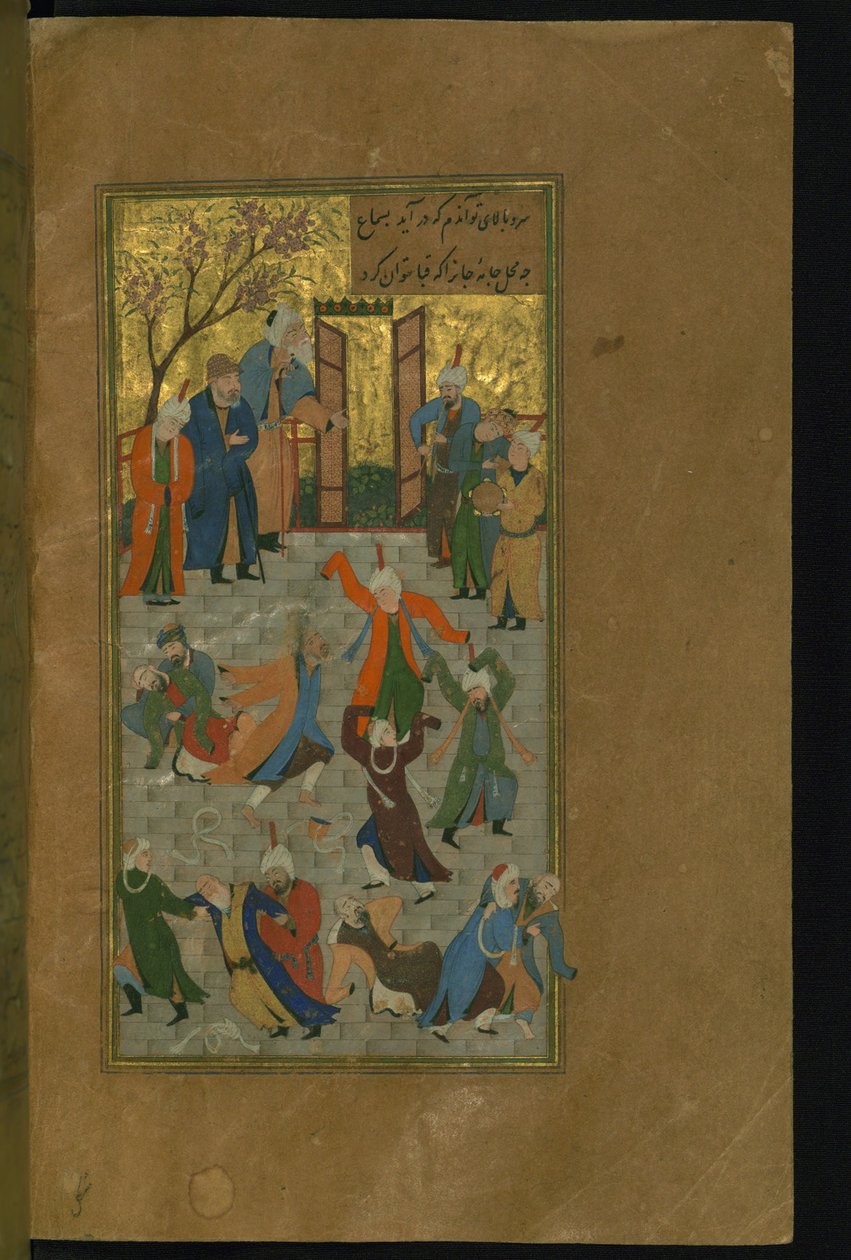 سرو بالای تو آندم که در آید بسماع
چه محل جامهٔ جانرا که قبا نتوان کرد